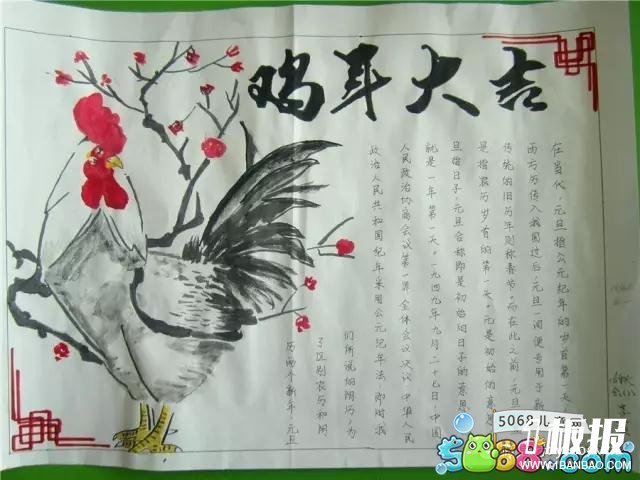 鸡年大吉
在当代,元旦指公元纪年的岁首第一天
西方历传入我国过后,元旦一词便专用于新
传统的旧历年则称春节。而在此之前,元旦
是指农历岁首的第一天。元是初始的意
旦指日子,元旦合称即是初始的日子的意思
就是一年第一天。一九四九年九月二十七日,中国
人民政治协商会议第一届全体会议决议:中华人民
政治人民共和国纪年采用公元纪年法,即时我
们所说的阴历,为
了区别农历和阳
历两个新年,元旦
5068儿童
板报
5068.com
WWW.1BANBAO.COM